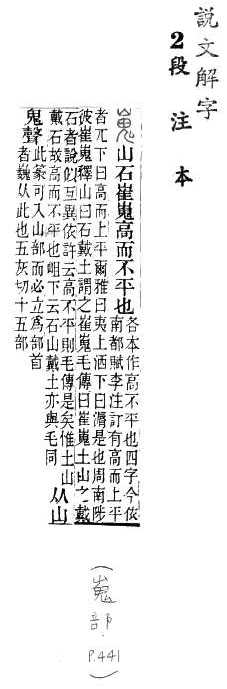 説文解字
2段注本
嵬山石崔嵬高而不平也
各本作高不平也四字今依
南都賦李注訂有高而上平
者兀下曰高而上平爾雅曰夷上洒下曰漘是也周南陟
彼崔嵬釋山曰石戴土謂之崔嵬毛傳曰崔嵬土山之戴
石者說似互異依許云高不平則毛傳是矣惟土山
戴石故高而不平也岨下云石山戴土亦與毛同
从山
鬼聲
此篆可入山部而必立爲部首
者巍从此也五灰切十五部
(嵬部 P.441)